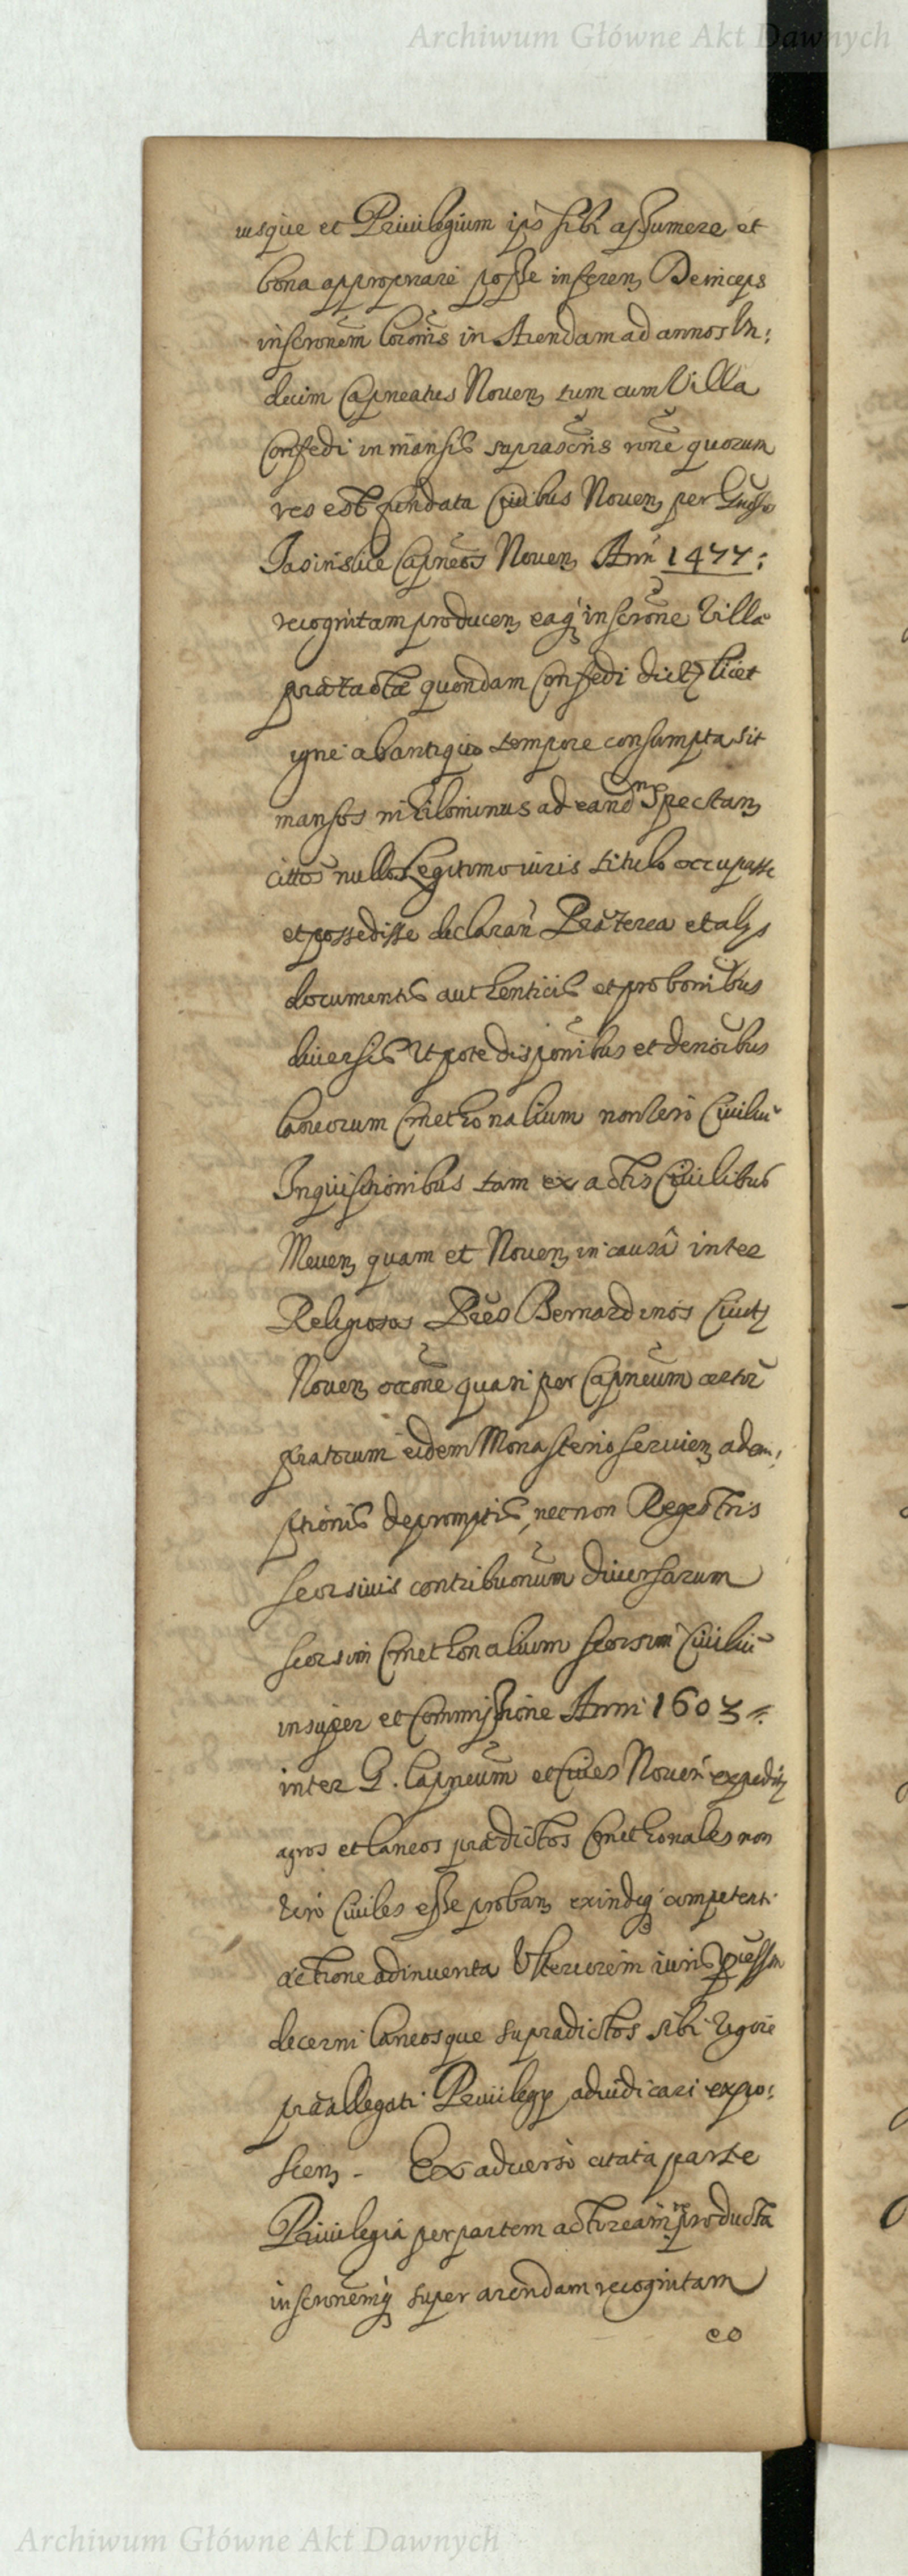 Archiwum Główne Akt Dawnych
iusque et Priuilegium ips sibi assumere et
bona appropriare posse inferen, Deinceps
inscrōnem in Arendam ad annos Vn:
decim Capneatus Nouen, tum cum Villa
Confedi in mansis suprascr̄is rōne quorum
res est fundata Ciuibus Nouen, per
Capneos Nouen, Ann 1477:
recognitam producen, eaq inscrōne Villa
prætactæ quondam Confedi licet
igne ab antiquo tempore consumpta sit
mansos nihilominus ad eandm Spectan,
cittos nullo Legitimo iuris titulo occupasse
et possedisse declaran Præterea et alijs
documentis authenticis et probonibus
diuersis Utpote disponibus et
laneorum Cmethonalium non Vero Ciuiliū
Inquisitionibus tam ex actis Ciuilibus
Meuen, quam et Nouen, in causâ inter
Religiosos Pres Bernardinos Ciuit
Nouen, occōne quasi per Capneum
pratorum eidem Monasterio seruien, adem:
ptionis depromptis, necnon Regestris
seorsiuis contribuōnum diuersarum
seorsim Cmethonalium seorsim Ciuiliū
insuper et Commissione Anni 1603
inter G. Capneum et Ciues Nouen
agros et laneos prædictos Cmethonales non
Vero Ciuiles esse proban, exindeq competenti
actione adinuenta Vlteriorem iuris
decerni laneosque supradictos sibi Vigore
præallegati Priuilegij adiudicari expo:
scen, - Ex aduerso citata parte
Priuilegia per partem actoream producta
inscrōnemq super arendam recognitam
eo
Archiwum Główne Akt Dawnych